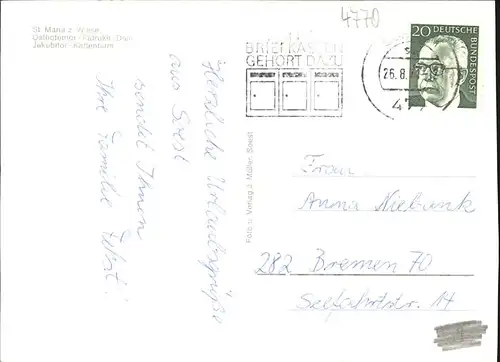 4770
St. Maria z. Wiese
Jakobitor - Kattenturm
BRIEFKASTEN
GEHÖRT DAZU
26.8.
47
20 DEUTSCHE
BUNDESPOST
Herzliche Urlaubsgrüße
aus Soest
sendet Ihnen
Ihre Familie
Foto u. Verlag J. Müller, Soest
Frau
Anna Niebank
282 Bremen 70
Seefahrtstr. 14